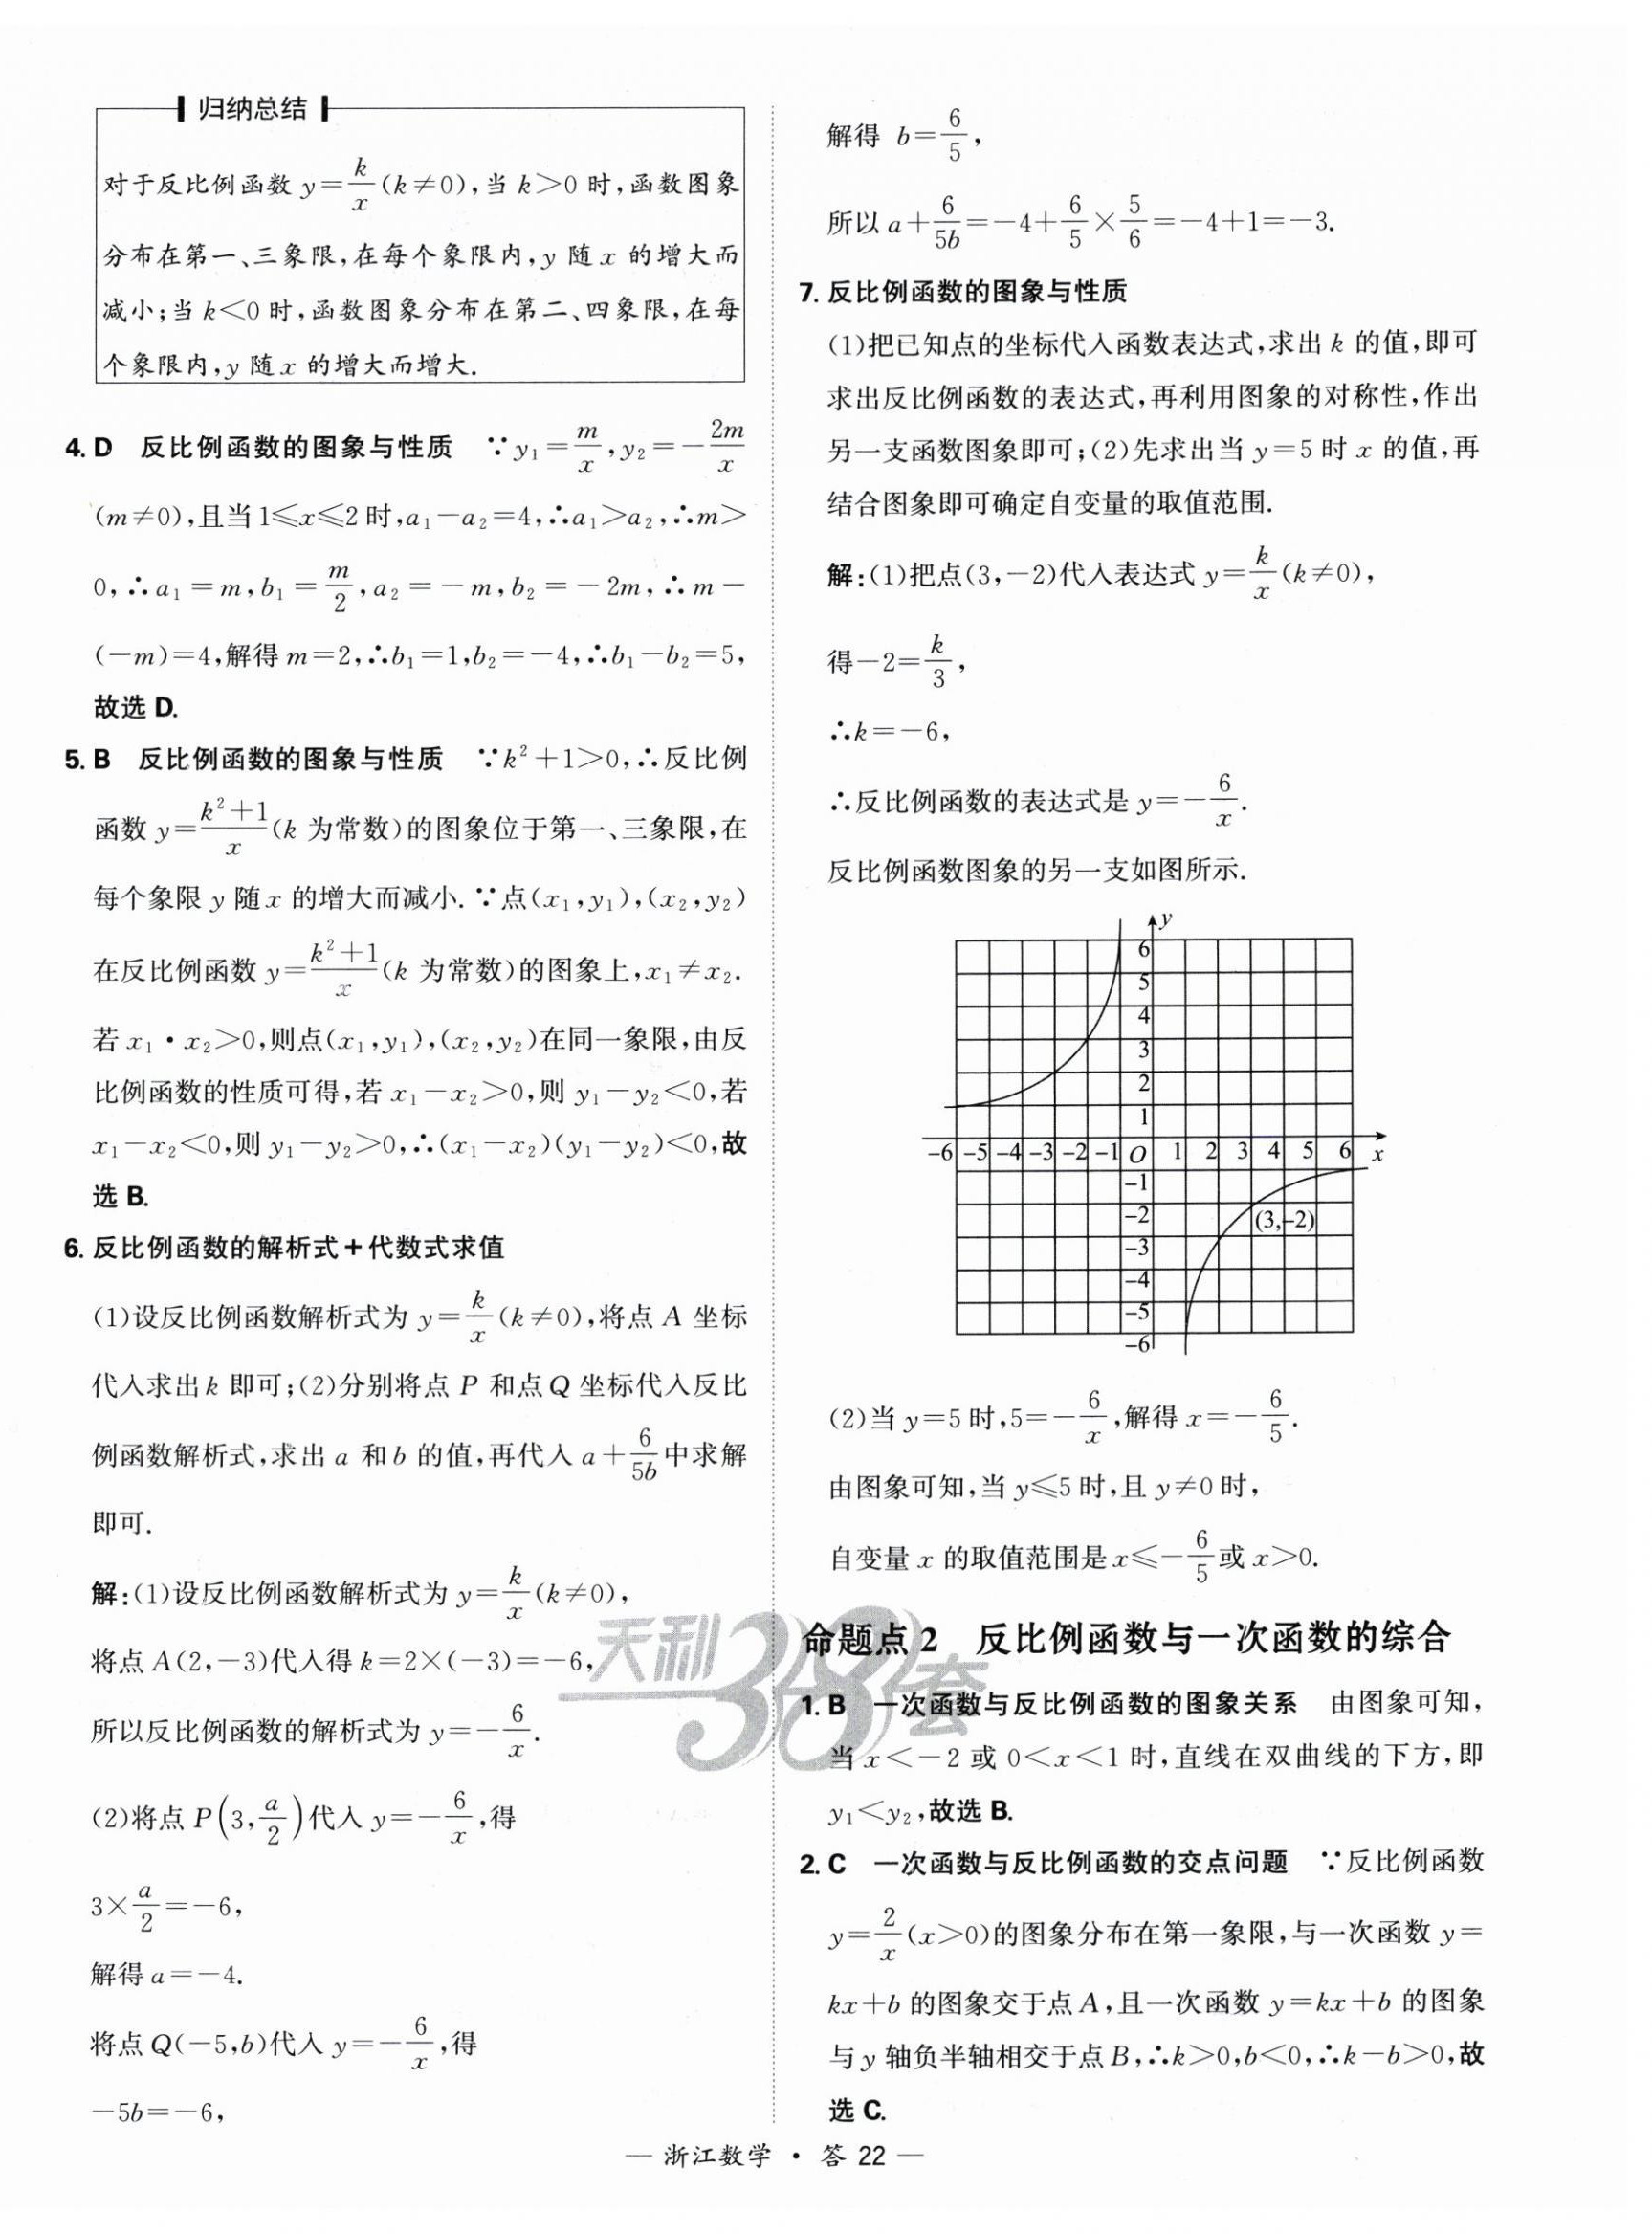 归纳总结
对于反比例函数 y=k/x(k≠0),当 k>0 时,函数图象
分布在第一、三象限,在每个象限内,y 随 x 的增大而
减小;当 k<0 时,函数图象分布在第二、四象限,在每
个象限内,y 随 x 的增大而增大.
4. D 反比例函数的图象与性质 ∵y₁=m/x,y₂=-2m/x
(m≠0),且当 1≤x≤2 时,a₁-a₂=4,∴a₁>a₂,∴m>
0,∴a₁=m,b₁=m/2,a₂=-m,b₂=-2m,∴m-
(-m)=4,解得 m=2,∴b₁=1,b₂=-4,∴b₁-b₂=5,
故选 D.
5. B 反比例函数的图象与性质 ∵k²+1>0,∴反比例
函数 y=(k²+1)/x(k 为常数)的图象位于第一、三象限,在
每个象限 y 随 x 的增大而减小.∵点(x₁,y₁),(x₂,y₂)
在反比例函数 y=(k²+1)/x(k 为常数)的图象上,x₁≠x₂.
若 x₁·x₂>0,则点(x₁,y₁),(x₂,y₂)在同一象限,由反
比例函数的性质可得,若 x₁-x₂>0,则 y₁-y₂<0,若
x₁-x₂<0,则 y₁-y₂>0,∴(x₁-x₂)(y₁-y₂)<0,故
选 B.
6. 反比例函数的解析式+代数式求值
(1)设反比例函数解析式为 y=k/x(k≠0),将点 A 坐标
代入求出 k 即可;(2)分别将点 P 和点 Q 坐标代入反比
例函数解析式,求出 a 和 b 的值,再代入 a+6/5b 中求解
即可.
解:(1)设反比例函数解析式为 y=k/x(k≠0),
将点 A(2,-3)代入得 k=2×(-3)=-6,
所以反比例函数的解析式为 y=-6/x.
(2)将点 P(3,a/2)代入 y=-6/x,得
3×a/2=-6,
解得 a=-4.
将点 Q(-5,b)代入 y=-6/x,得
-5b=-6,
解得 b=6/5,
所以 a+6/5b=-4+6/5×5/6=-4+1=-3.
7. 反比例函数的图象与性质
(1)把已知点的坐标代入函数表达式,求出 k 的值,即可
求出反比例函数的表达式,再利用图象的对称性,作出
另一支函数图象即可;(2)先求出当 y=5 时 x 的值,再
结合图象即可确定自变量的取值范围.
解:(1)把点(3,-2)代入表达式 y=k/x(k≠0),
得-2=k/3,
∴k=-6,
∴反比例函数的表达式是 y=-6/x.
反比例函数图象的另一支如图所示.
y
6
5
4
3
2
1
-6 -5 -4 -3 -2 -1 O 1 2 3 4 5 6 x
-1
-2 (3,-2)
-3
-4
-5
-6
(2)当 y=5 时,5=-6/x,解得 x=-6/5.
由图象可知,当 y≤5 时,且 y≠0 时,
自变量 x 的取值范围是 x≤-6/5 或 x>0.
天利38套
命题点 2 反比例函数与一次函数的综合
1. B 一次函数与反比例函数的图象关系 由图象可知,
当 x<-2 或 0<x<1 时,直线在双曲线的下方,即
y₁<y₂,故选 B.
2. C 一次函数与反比例函数的交点问题 ∵反比例函数
y=2/x(x>0)的图象分布在第一象限,与一次函数 y=
kx+b 的图象交于点 A,且一次函数 y=kx+b 的图象
与 y 轴负半轴相交于点 B,∴k>0,b<0,∴k-b>0,故
选 C.
— 浙江数学 · 答 22 —